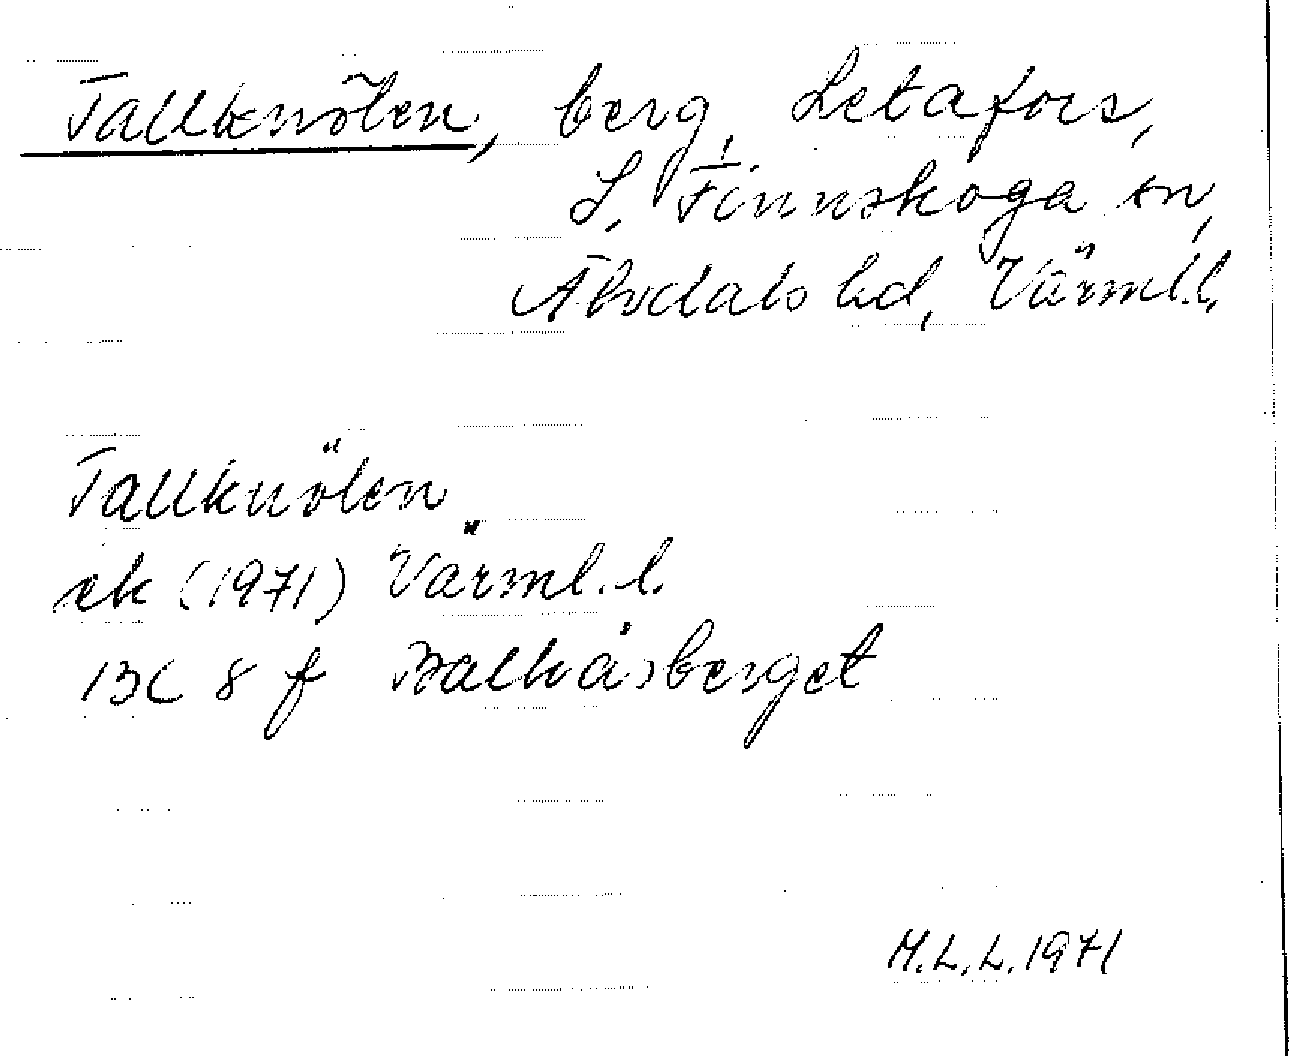 Tallknölen, berg, Letafors,
S. Finnskoga sn,
Älvdals hd, Värml.l.
Tallknölen
ek (1971) Värml. l.
13C 8 f Balkåsberget
M.L.L. 1971